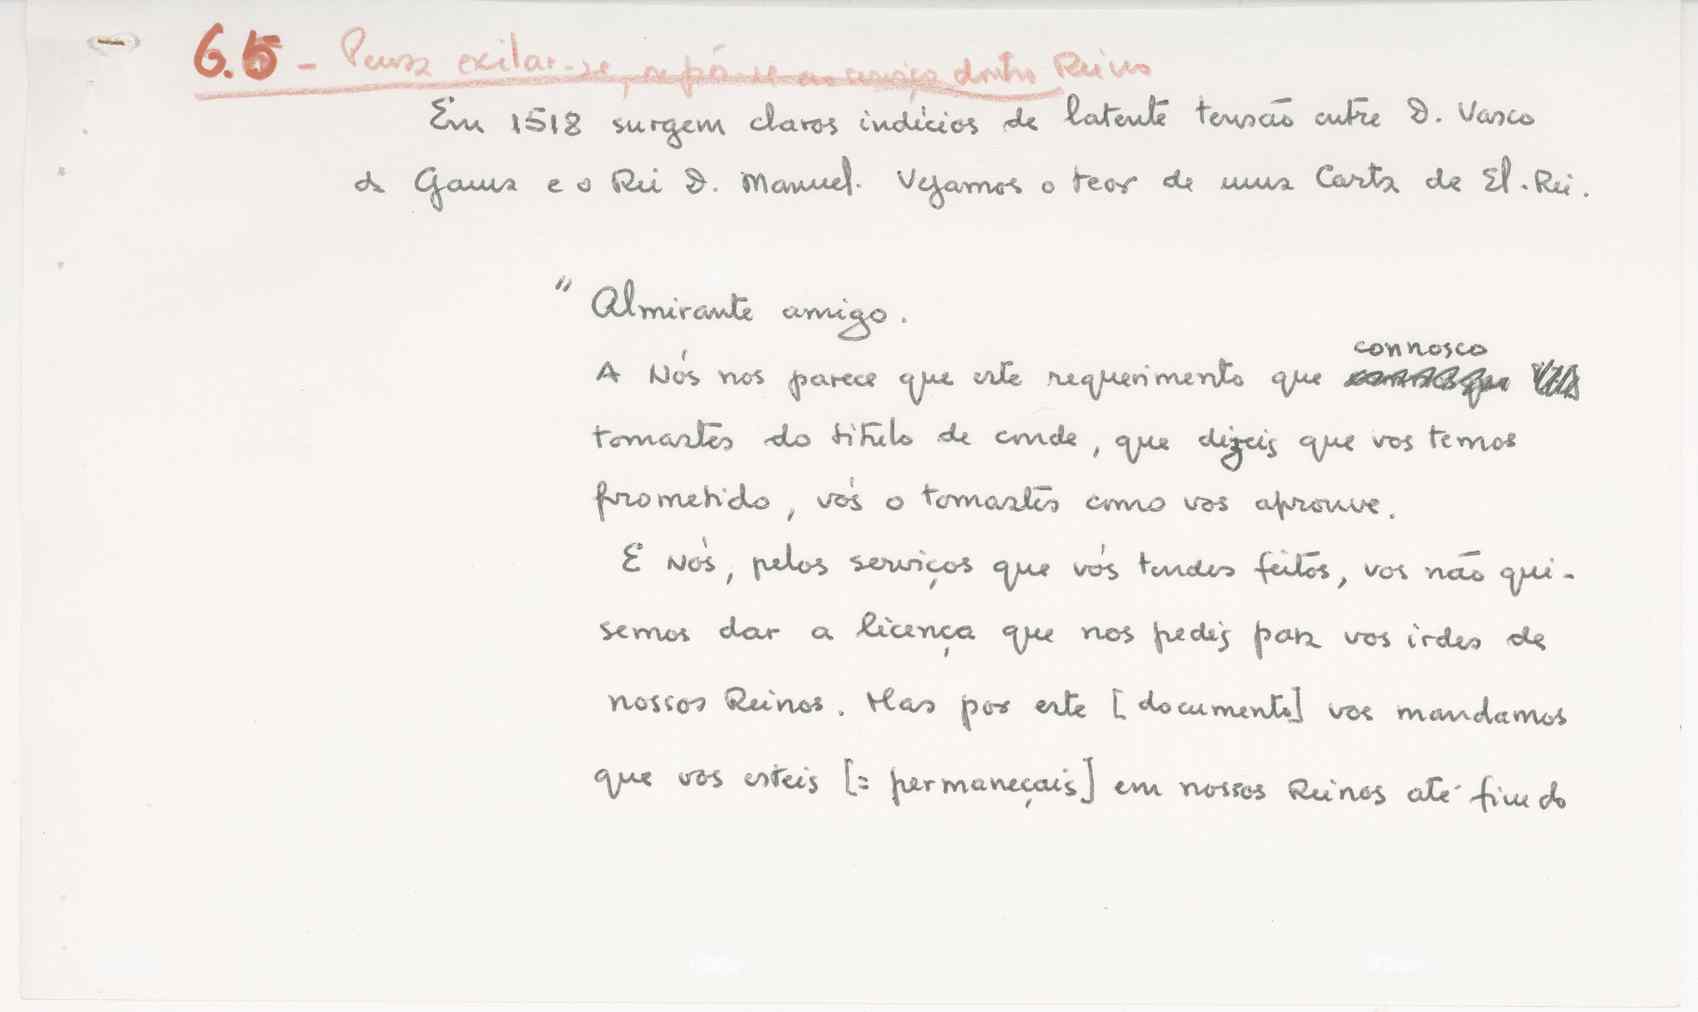 6.5 - Pensa exilar-se, e põe-se ao serviço doutro Reino
Em 1518 surgem claros indícios de latente tensão entre D. Vasco
da Gama e o Rei D. Manuel. Vejamos o teor de uma Carta de El-Rei.
"Almirante amigo.
connosco
A Nós nos parece que este requerimento que
tomastes do título de conde, que dizeis que vos temos
prometido, vós o tomastes como vos aprouve.
E Nós, pelos serviços que vós tendes feitos, vos não qui-
semos dar a licença que nos pedis para vos irdes de
nossos Reinos. Mas por este [documento] vos mandamos
que vos esteis [= permaneçais] em nossos Reinos até fim do